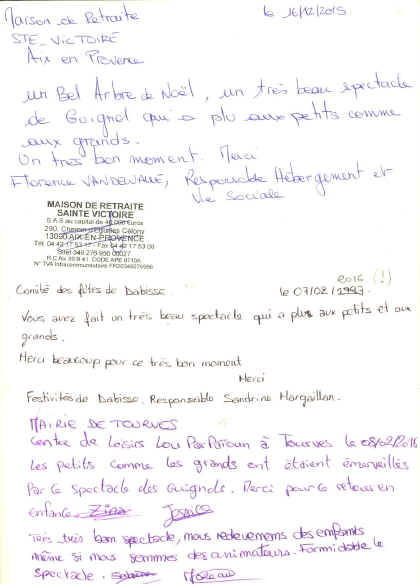 Maison de Retraite
le 16/12/2015
STE_VICTOIRE
Aix en Provence
un Bel Arbre de Noël, un très beau spectacle
de Guignol qui a plu aux petits comme
aux grands.
Un très bon moment. Merci
Florence VANDEWALLE, Responsable Hébergement et
Vie Sociale
MAISON DE RETRAITE
SAINTE VICTOIRE
S.A.S au capital de Euros
290, Chemin d'Eguilles Célony
13090 AIX-EN-PROVENCE
Tél. 04 42 17 53 17 - Fax 04 42 17 53 00
Siret 349 276 956 00027
N° TVA Intracommunautaire
2016 (!)
Comité des fêtes de Dabisse. le 07/02/1997.
Vous avez fait un très beau spectacle qui a plus aux petits et aux
grands.
Merci beaucoup pour ce très bon moment
Merci
Festivités de Dabisse. Responsable Sandrine Margaillan.
MAIRIE DE TOURVES
Centre de Loisirs Lou à Tourves le 08/02/2016
Les petits comme les grands ont étaient émerveillés
Par le spectacle des Guignols. Merci pour ce retour en
enfance.
Très très bon spectacle, nous redevenons des enfants
même si nous sommes des animateurs. Formidable le
spectacle.